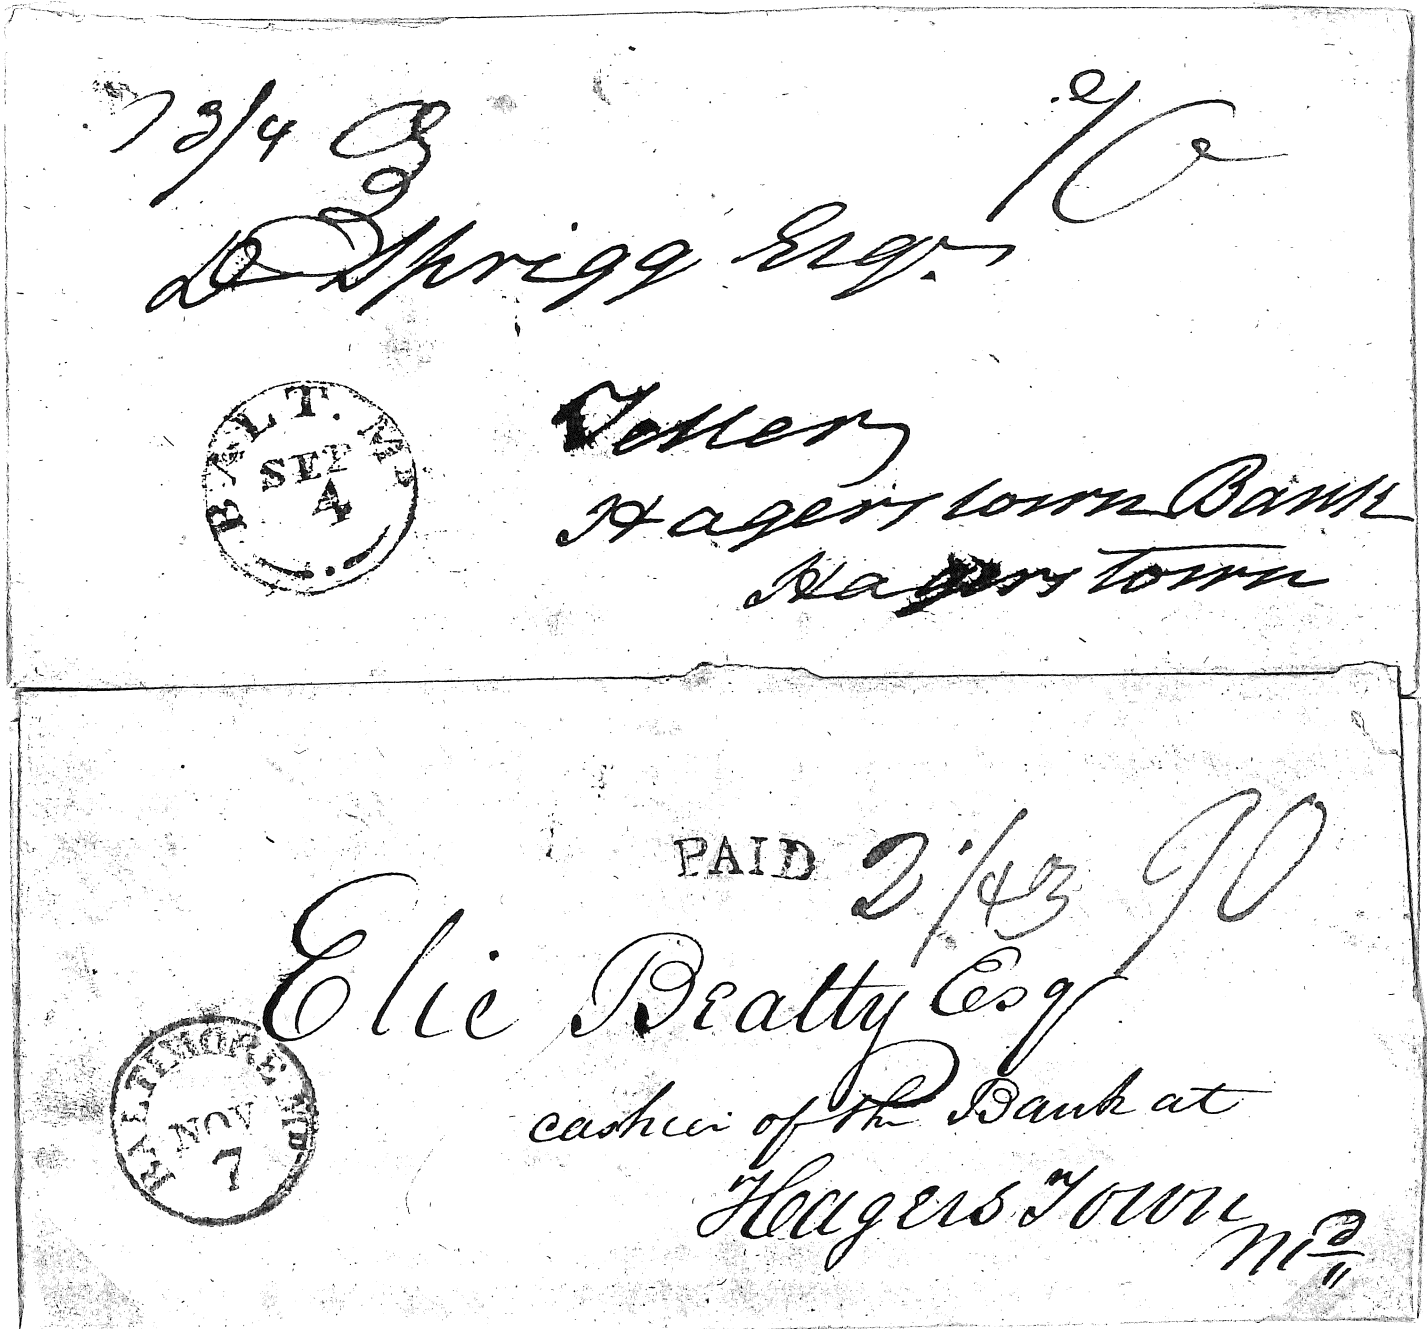 3/4
D Sprigg Esqr.
BALT. Md
SEP
4
Teller
Hagerstown Bank
Hagerstown
PAID 2 1/43 90
Elie Beatty Esq
BALTIMORE Md
NOV
7
cashier of the Bank at
Hagers Town
Md